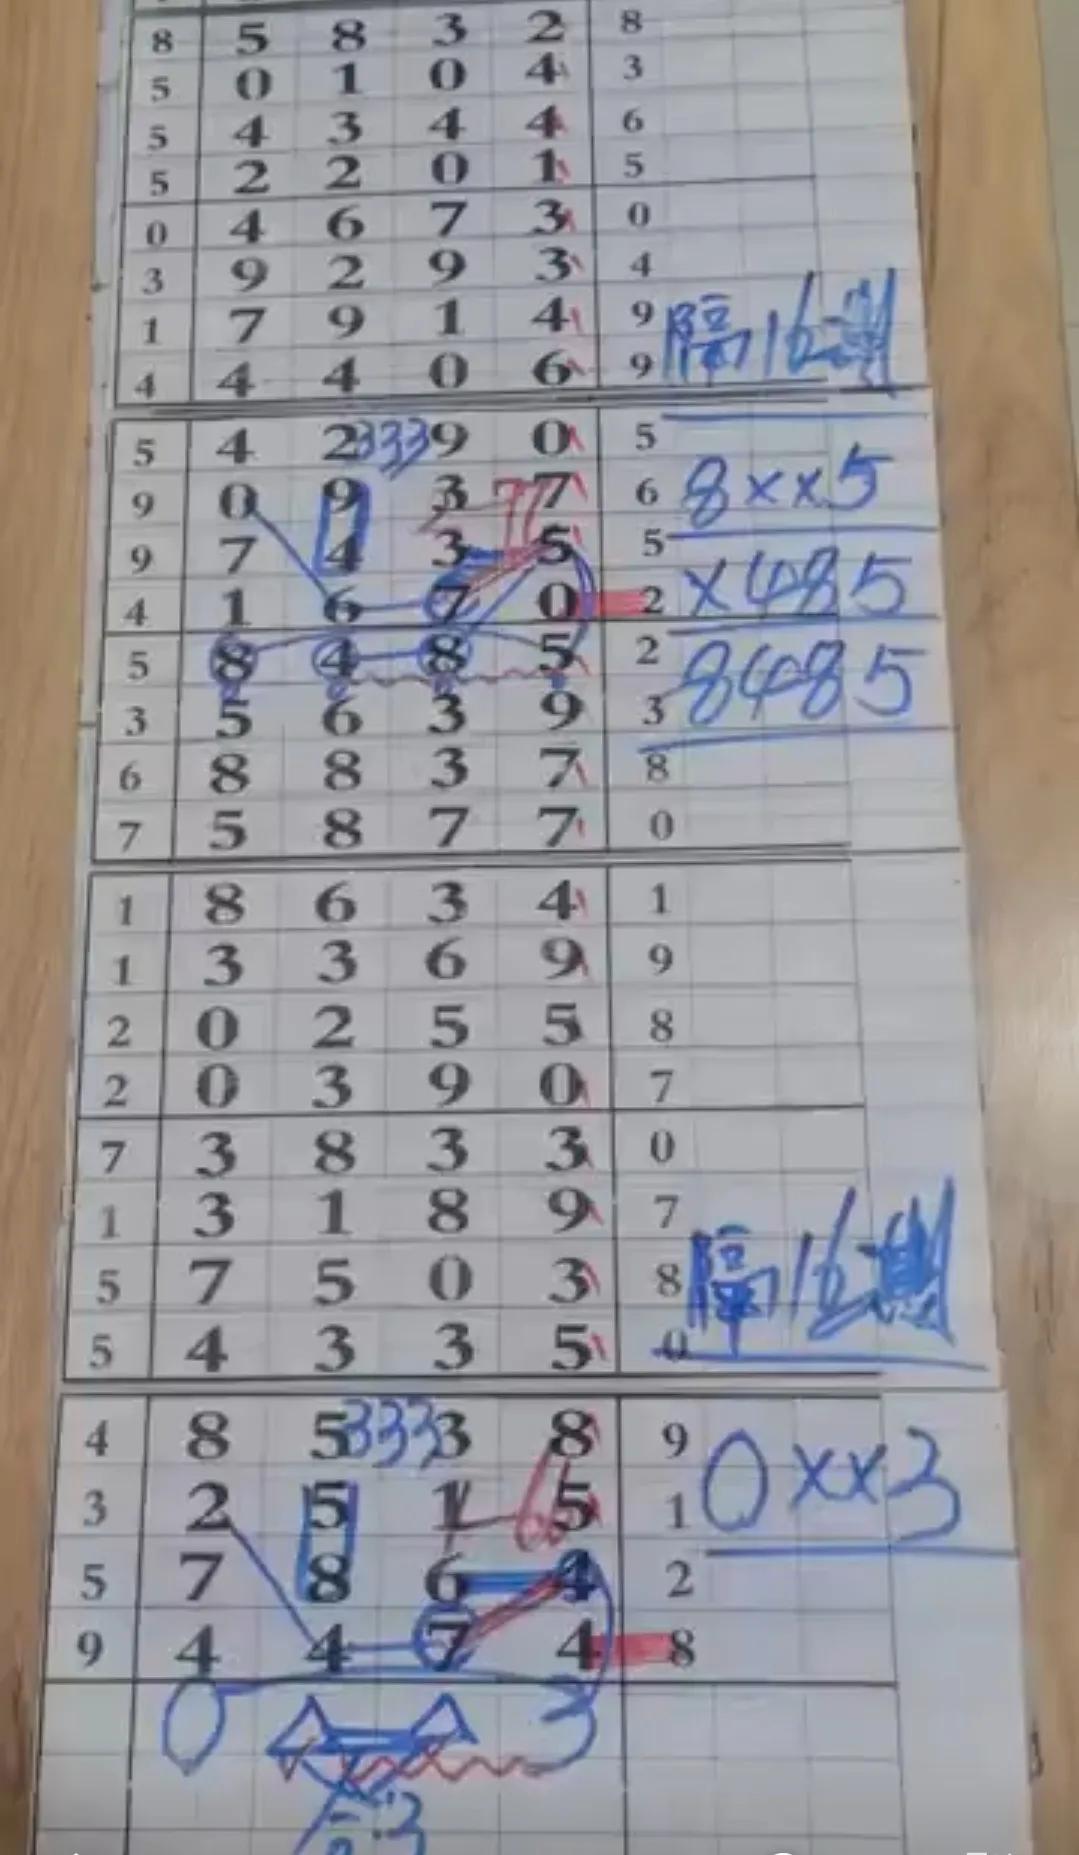 8 5 8 3 2 8
5 0 1 0 4 3
5 4 3 4 4 6
5 2 2 0 1 5
0 4 6 7 3 0
3 9 2 9 3 4
1 7 9 1 4 9
4 4 4 0 6 9
隔16期
5 4 2 333 9 0 5
9 0 9 3 77 7 6
8××5
9 7 4 3 5 5
4 1 6 7 0 2
×485
5 8 4 8 5 2
8485
3 5 6 3 9 3
6 8 8 3 7 8
7 5 8 7 7 0
1 8 6 3 4 1
1 3 3 6 9 9
2 0 2 5 5 8
2 0 3 9 0 7
7 3 8 3 3 0
1 3 1 8 9 7
5 7 5 0 3 8
隔16期
5 4 3 3 5 0
4 8 5 333 3 8 9
0××3
3 2 5 1 5 1
5 7 8 6 4 2
9 4 4 7 4 8
0 3